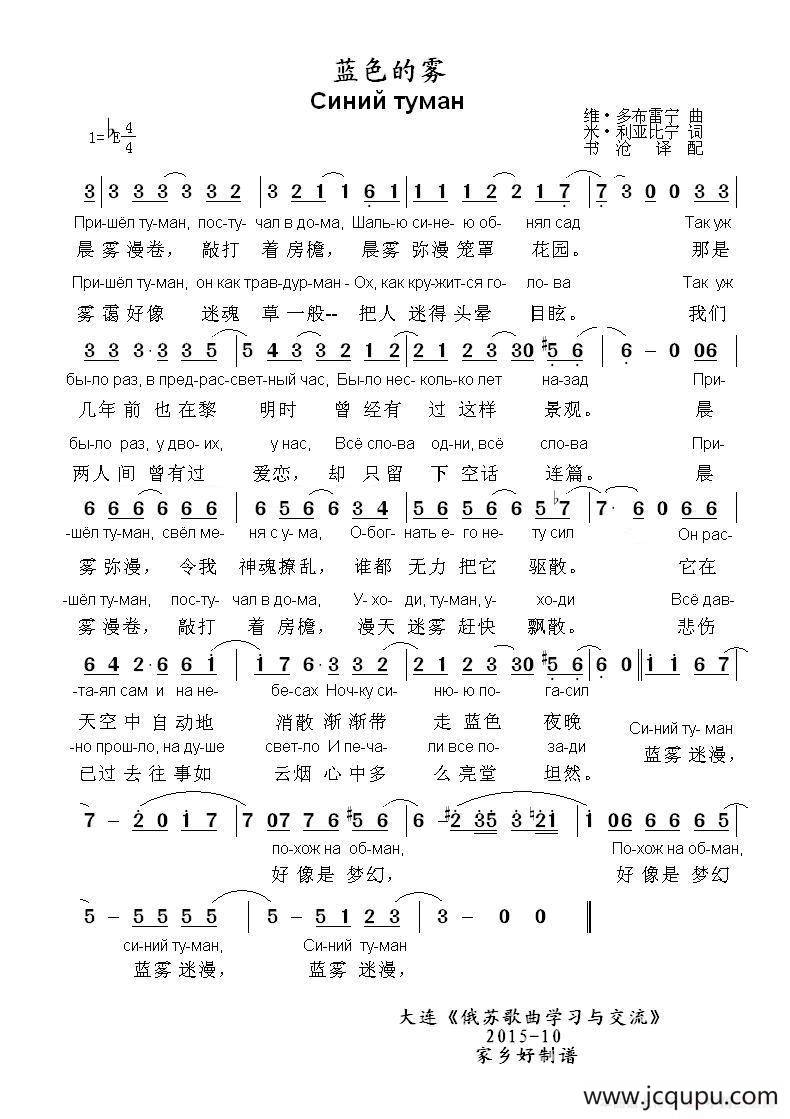 蓝色的雾
Синий туман
1=♭E 4/4
维·多布雷宁 曲
米·利亚比宁 词
书 沧 译 配
3 | 3 3 3 3 3 2 | 3 2 1 1 6 1 | 1 1 1 2 2 1 7 | 7 3 0 0 3 3 |
При-шёл ту-ман, пос-ту- чал в до-ма, Шаль-ю си-не-ю об- нял сад Так уж
晨 雾 漫卷， 敲打 着 房檐， 晨雾 弥漫 笼罩 花园。 那是
При-шёл ту-ман, он как трав-дур-ман - Ох, как кру-жит-ся го- ло-ва Так уж
雾 霭 好像 迷魂 草 一般-- 把人 迷得 头晕 目眩。 我们
3 3 3·3 3 5 | 5 4 3 3 2 1 2 | 2 1 2 3 30 #5 6 | 6 – 0 06 |
бы-ло раз, в пред-рас-свет-ный час, Бы-ло нес-коль-ко лет на-зад При-
几年 前 也 在黎 明时 曾 经有 过 这样 景观。 晨
бы-ло раз, у дво-их, у нас, Всё сло-ва од-ни, всё сло-ва При-
两人 间 曾有过 爱恋， 却 只留 下 空话 连篇。 晨
6 6 6 6 6 6 | 6 5 6 6 3 4 | 5 6 5 6 6 5 ♭7 | 7· 6 0 6 6 |
-шёл ту-ман, свёл ме- ня с у-ма, О-бог- нать е-го не- ту сил Он рас-
雾 弥漫， 令我 神魂撩乱， 谁都 无力 把它 驱散。 它在
-шёл ту-ман, пос-ту- чал в до-ма, У-хо- ди, ту-ман, у- хо-ди Всё дав-
雾 漫卷， 敲打 着 房檐， 漫天 迷雾 赶快 飘散。 悲伤
6 4 2·6 6 1 | 1 7 6·3 3 2 | 2 1 2 3 30 #5 6 | 6 0 || 1 1 6 7 |
-та-ял сам и на не- бе-сах Ноч-ку си- ню-ю по- га-сил
天空 中 自动地 消散 渐 渐带 走 蓝色 夜晚
Си-ний ту- ман
-но прош-ло, на ду-ше свет-ло И пе-ча- ли все по- за-ди
蓝雾 迷漫，
已过 去往 事如 云烟 心中多 么亮堂 坦然。
7 – 2 0 1 7 | 7 07 7 6 #5 6 | 6 – #2 35 3 ♮21 | 1 06 6 6 6 5
по-хож на об-ман, По-хож на об-ман,
好 像是 梦幻， 好 像是 梦幻
5 – 5 5 5 5 | 5 – 5 1 2 3 | 3 – 0 0 ||
си-ний ту-ман, Си-ний ту-ман
蓝雾 迷漫， 蓝雾 迷漫，
大连《俄苏歌曲学习与交流》
2015-10
家乡好制谱
www.jcqupu.com